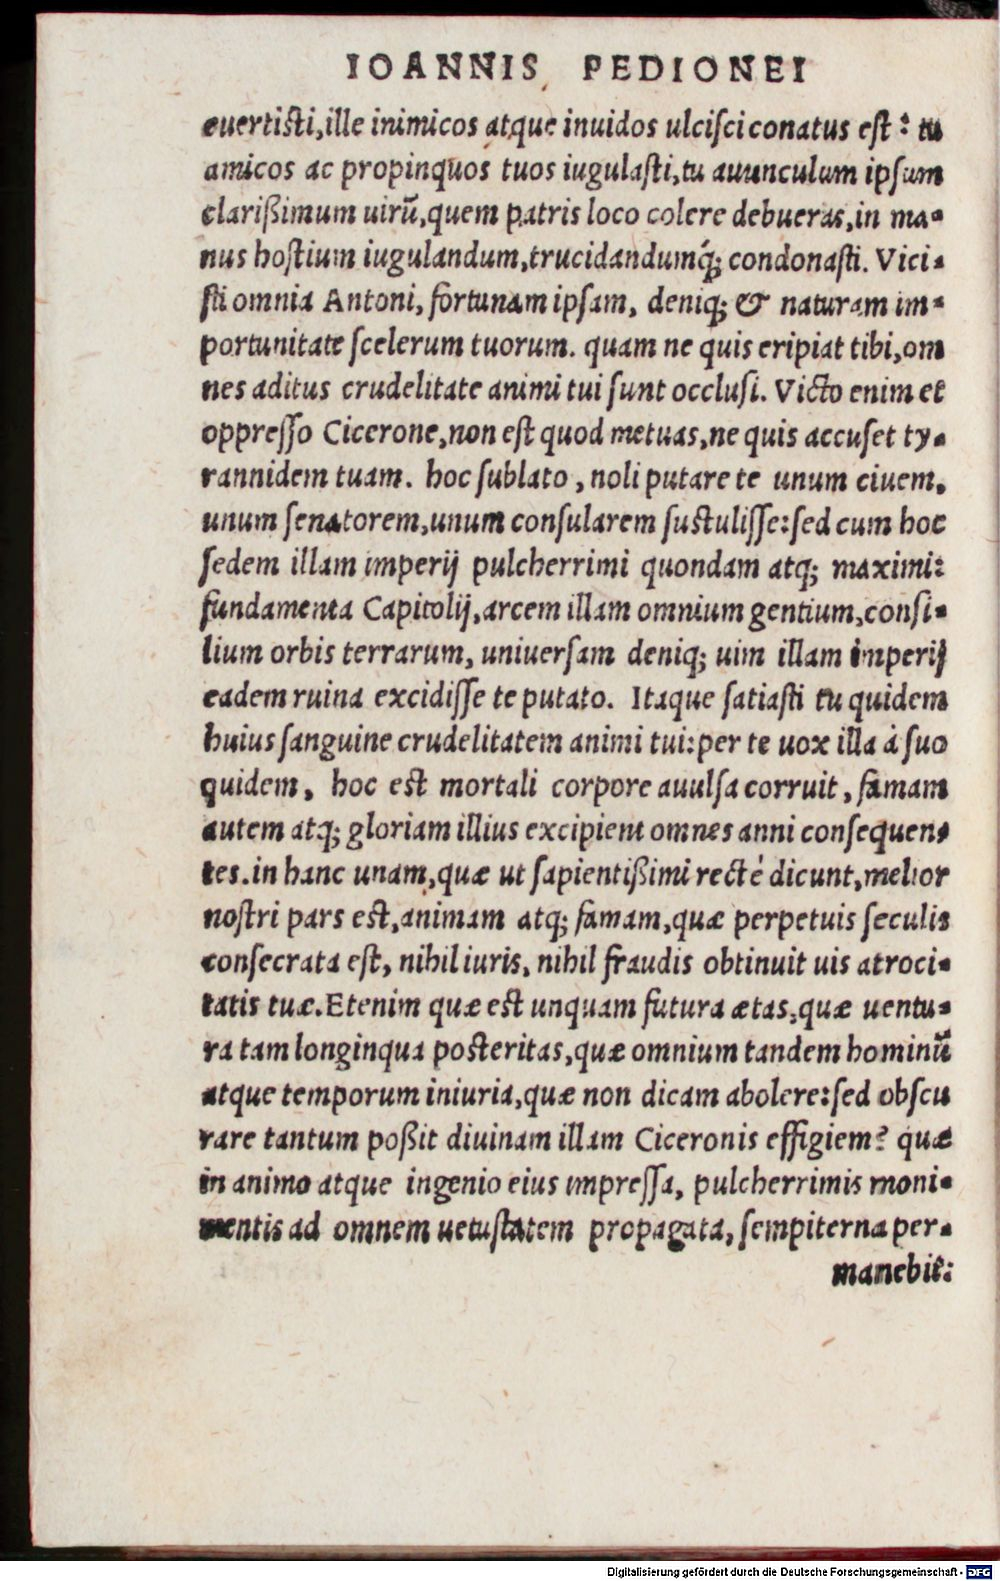 IOANNIS PEDIONEI
euertisti, ille inimicos atque inuidos ulcisci conatus est: tu
amicos ac propinquos tuos iugulasti, tu auunculum ipsum
clarißimum uirū, quem patris loco colere debueras, in ma-
nus hostium iugulandum, trucidandumq́; condonasti. Vici-
sti omnia Antoni, fortunam ipsam, deniq; & naturam im-
portunitate scelerum tuorum. quam ne quis eripiat tibi, om
nes aditus crudelitate animi tui sunt occlusi. Victo enim et
oppresso Cicerone, non est quod metuas, ne quis accuset ty-
rannidem tuam. hoc sublato, noli putare te unum ciuem,
unum senatorem, unum consularem sustulisse: sed cum hoc
sedem illam imperij pulcherrimi quondam atq; maximi:
fundamenta Capitolij, arcem illam omnium gentium, consi-
lium orbis terrarum, uniuersam deniq; uim illam imperij
eadem ruina excidisse te putato. Itaque satiasti tu quidem
huius sanguine crudelitatem animi tui: per te uox illa à suo
quidem, hoc est mortali corpore auulsa corruit, famam
autem atq; gloriam illius excipient omnes anni consequen-
tes. in hanc unam, quæ ut sapientißimi recté dicunt, melior
nostri pars est, animam atq; famam, quæ perpetuis seculis
consecrata est, nihil iuris, nihil fraudis obtinuit uis atroci-
tatis tuæ. Etenim quæ est unquam futura ætas, quæ uentu-
ra tam longinqua posteritas, quæ omnium tandem hominū
atque temporum iniuria, quæ non dicam abolere: sed obscu
rare tantum poßit diuinam illam Ciceronis effigiem? quæ
in animo atque ingenio eius impressa, pulcherrimis moni-
mentis ad omnem uetustatem propagata, sempiterna per-
manebit:
Digitalisierung gefördert durch die Deutsche Forschungsgemeinschaft - DFG